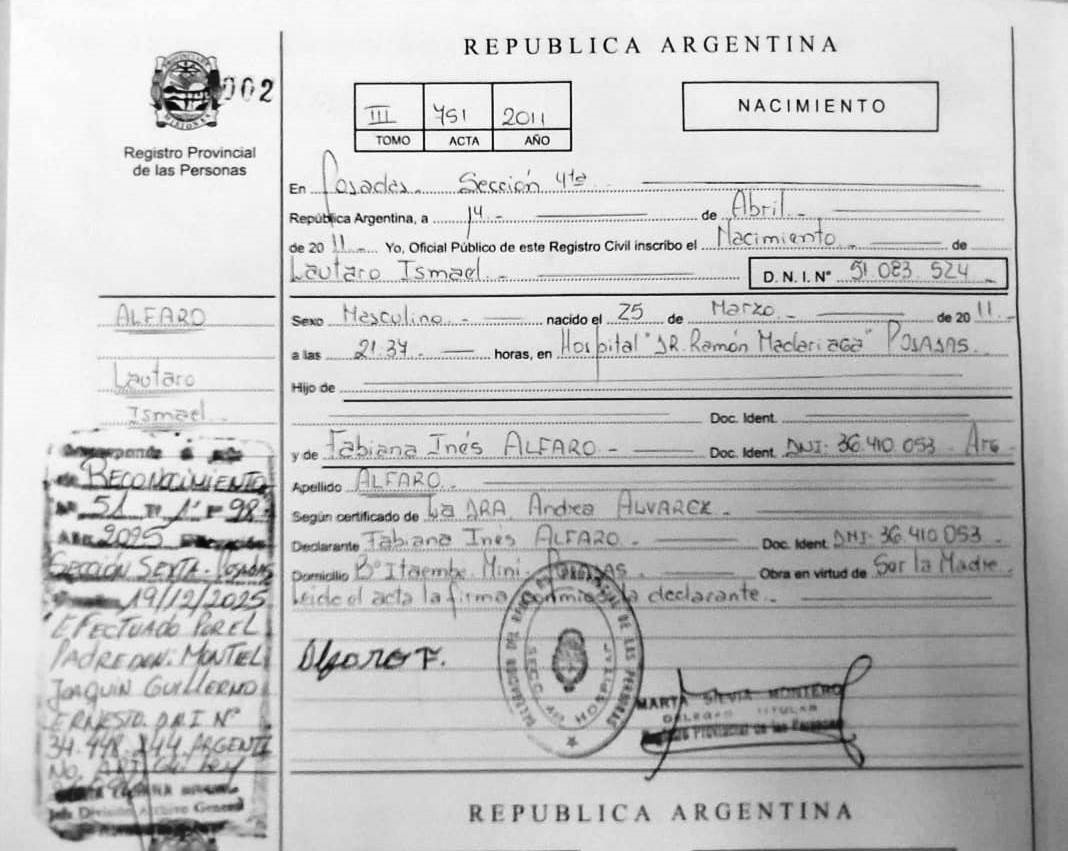 REPUBLICA ARGENTINA
002
III 751 2011
TOMO ACTA AÑO
NACIMIENTO
Registro Provincial
de las Personas
En Posadas. Sección 4ta
República Argentina, a 14.- de Abril.-
de 20 11.- Yo, Oficial Público de este Registro Civil inscribo el Nacimiento.- de
Lautaro Ismael.- D. N. I. N° 51.083.524
Sexo Masculino.- nacido el 25 de Marzo.- de 20 11.-
a las 21:37.- horas, en Hospital "DR. Ramón Madariaga" POSADAS.
Hijo de
Doc. Ident.
y de Fabiana Inés ALFARO.- Doc. Ident. DNI: 36.410.053.- Arg
Apellido ALFARO.-
Según certificado de La DRA. Andrea ALVAREZ.-
Declarante Fabiana Inés ALFARO.- Doc. Ident. DNI: 36.410.053.-
Domicilio B° Itaembé Miní. POSADAS. Obra en virtud de Ser la Madre.
Leida el acta la firma conmigo la declarante.-
ALFARO
Lautaro
Ismael.-
Corresponde
RECONOCIMIENTO
N° 51 T° 1° F° 98
Año 2025
SECCIÓN SEXTA. POSADAS
19/12/2025
EFECTUADO POR EL
PADRE DON: MONTIEL
JOAQUIN GUILLERMO
ERNESTO. D.N.I N°
34.448.244 ARGENTI
NO.
Jefa División Archivo General
Alfaro F.
DELEGACION DEL REGISTRO PROVINCIAL DE LAS PERSONAS
MARTA SILVIA MONTERO
DELEGADO TITULAR
Registro Provincial de las Personas
REPUBLICA ARGENTINA